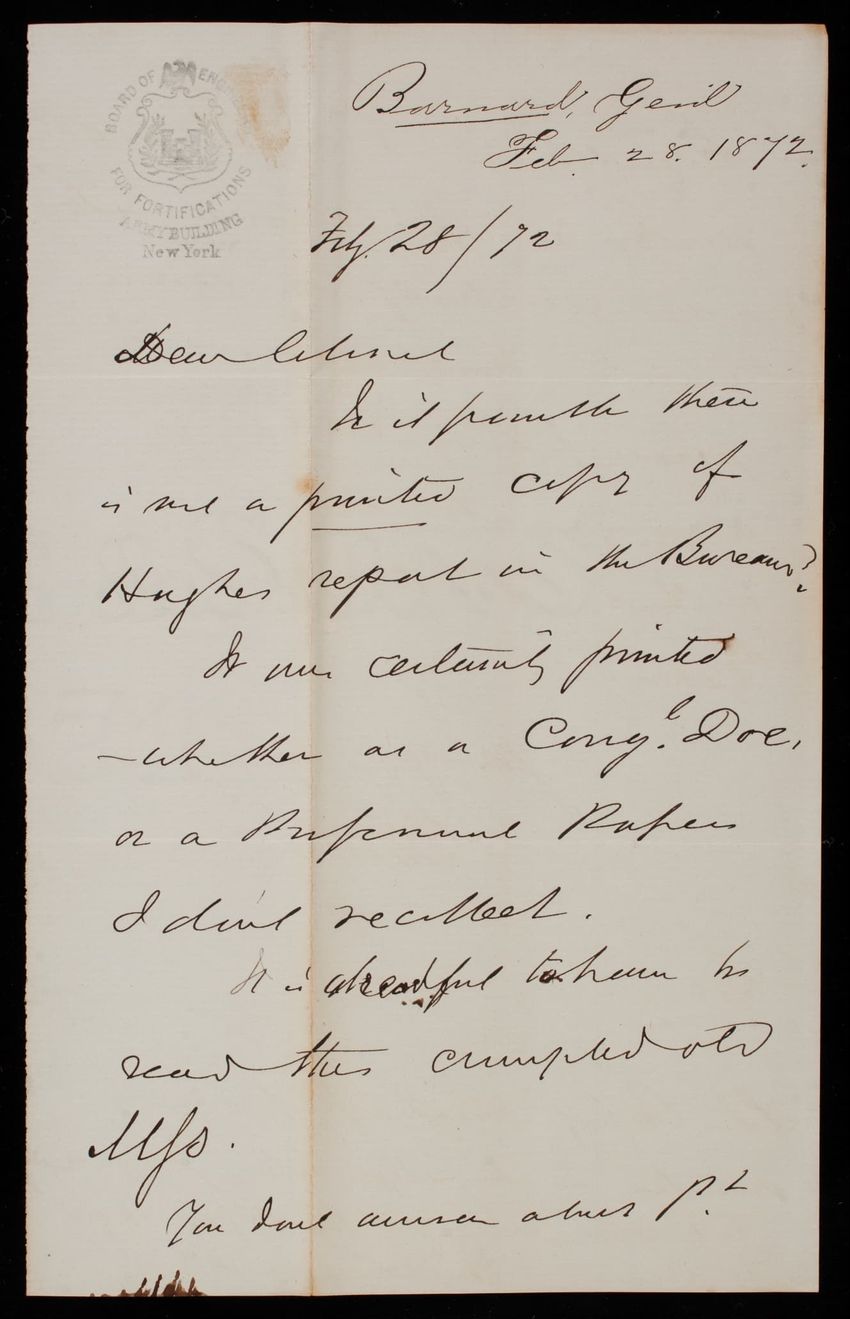 BOARD OF ENGINEERS
FOR FORTIFICATIONS
ARMY BUILDING
New York
Barnard, Genl
Feb. 28. 1872.
Feby. 28/72
Dear Colonel
Is it possible there
is not a printed copy of
Hughes report in the Bureau?
It was certainly printed
- whether as a Congl. Doc.
or a Professional Papers
I don't recollect.
It is dreadful to have to
read this crumpled old
Mss.
You dont answer about